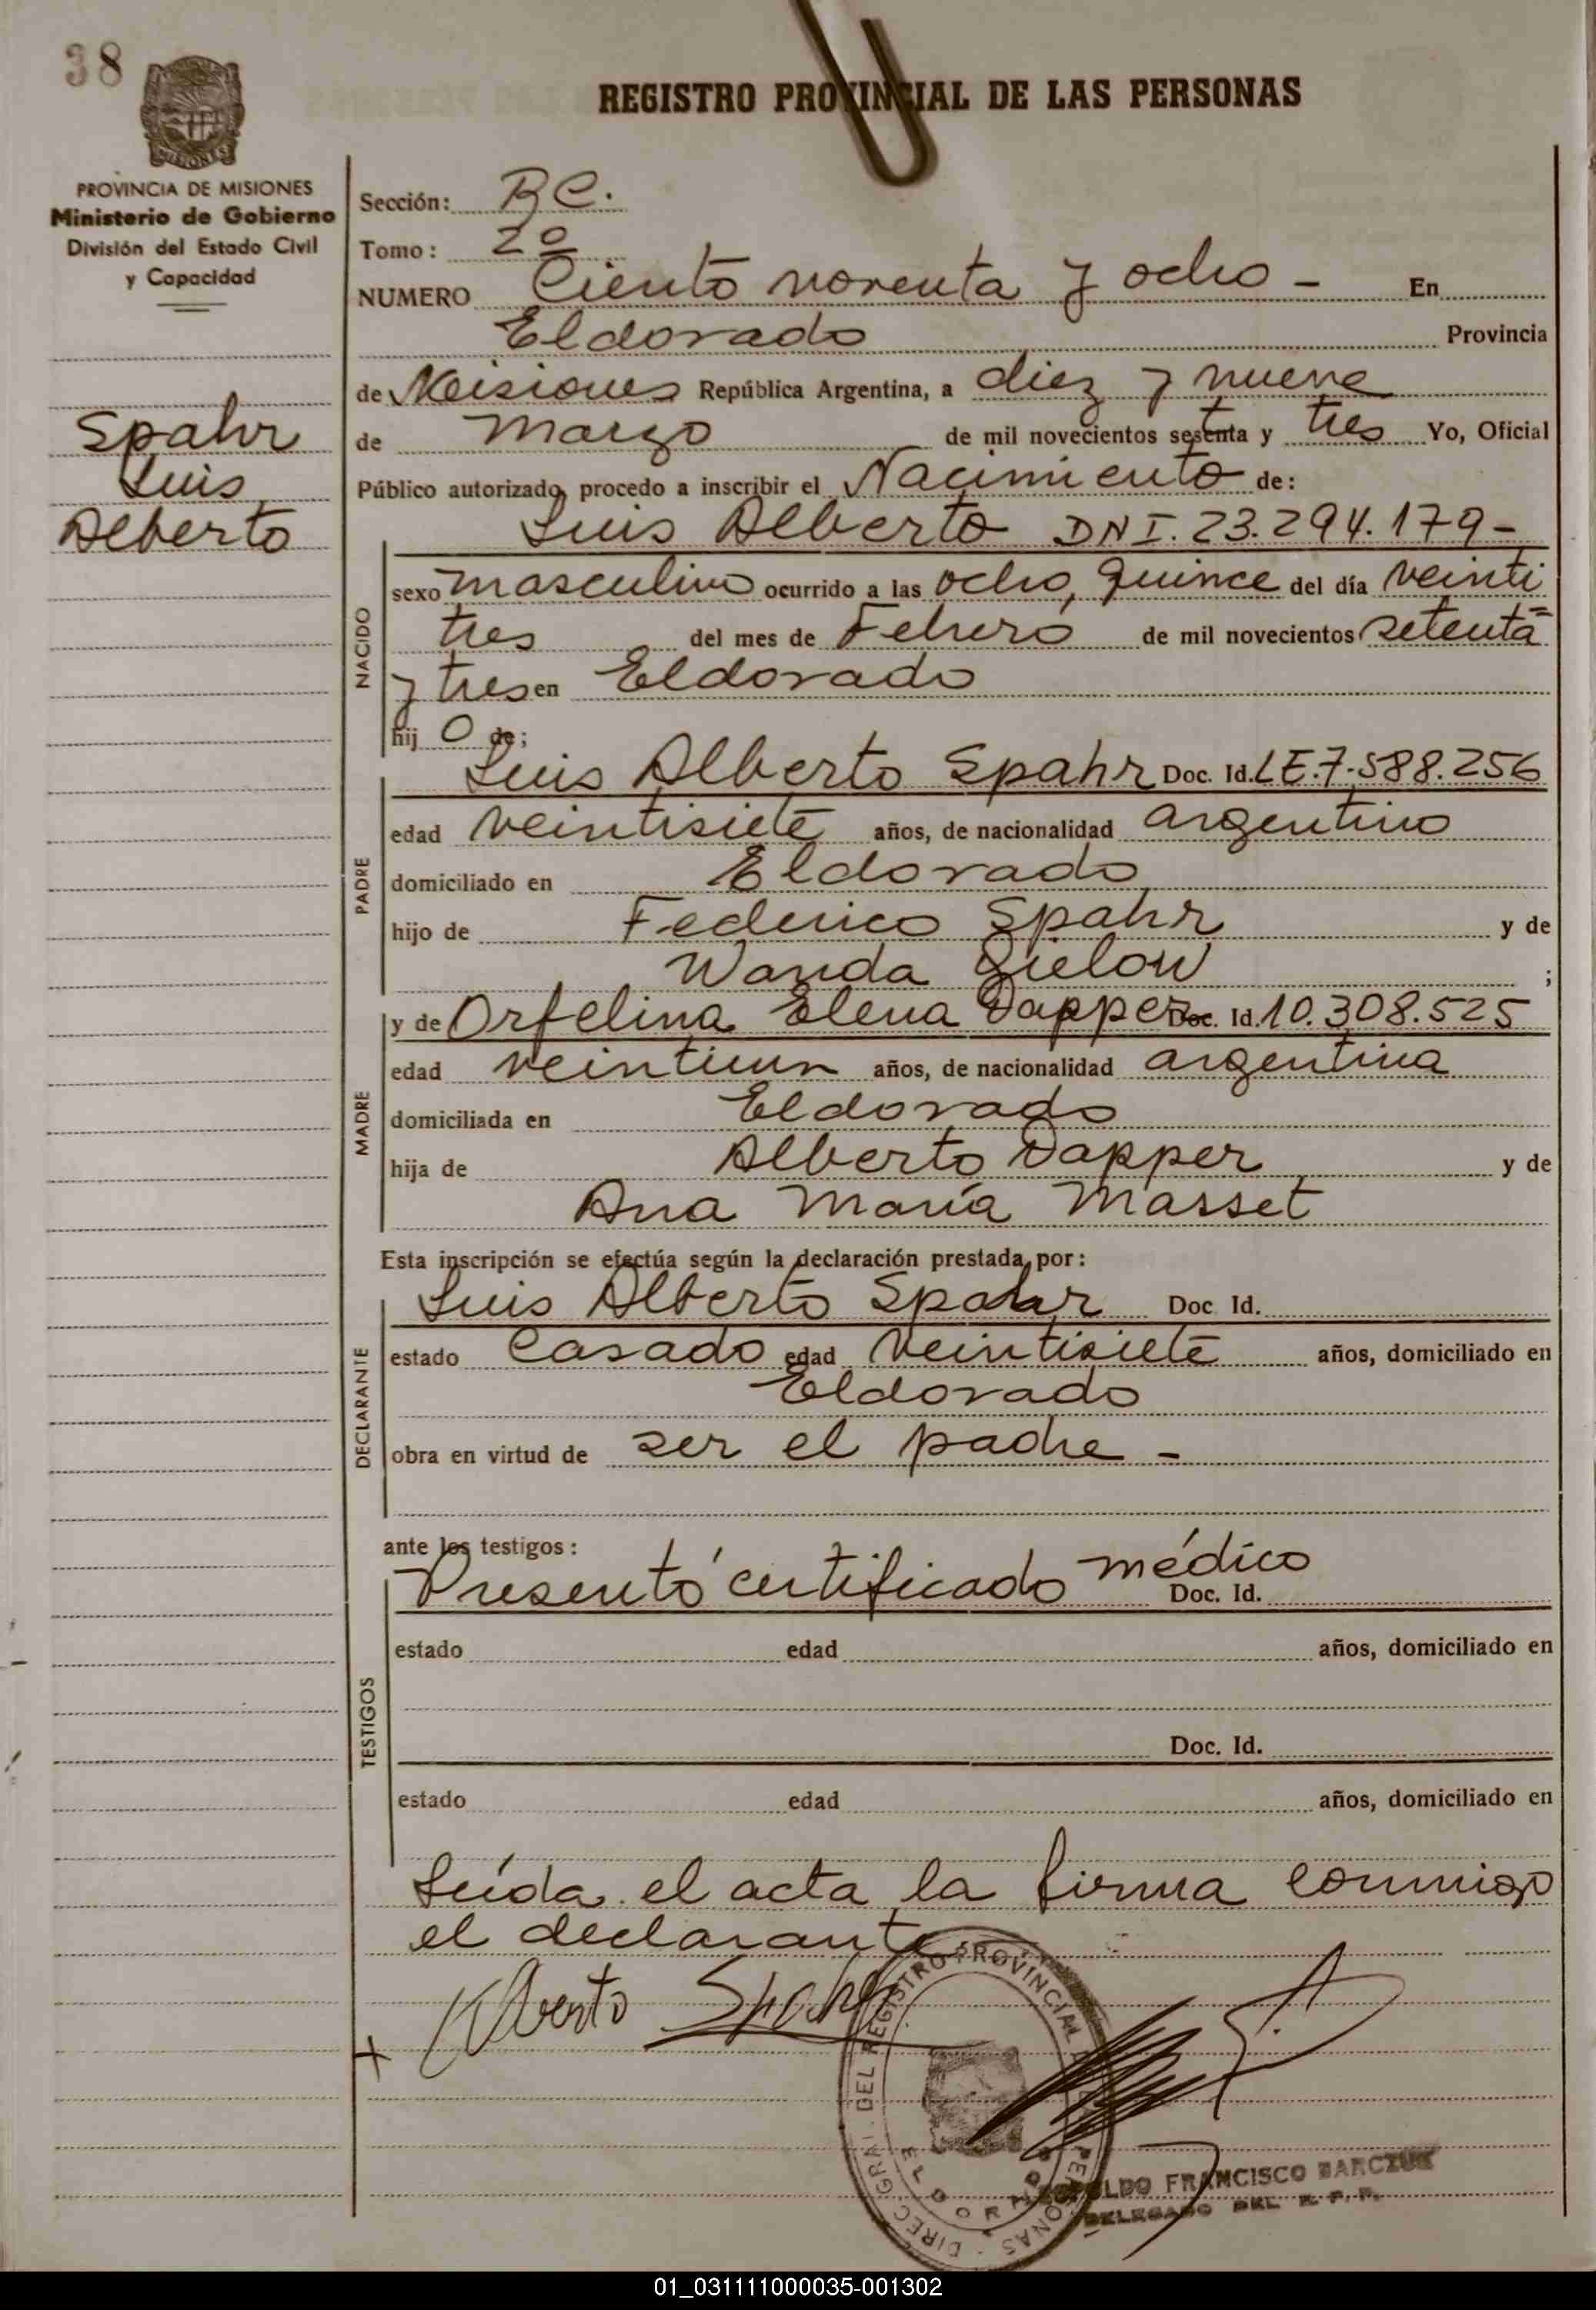 38
REGISTRO PROVINCIAL DE LAS PERSONAS
MISIONES
PROVINCIA DE MISIONES
Ministerio de Gobierno
División del Estado Civil
y Capacidad
Spahr
Luis
Alberto
Sección: RC.
Tomo: 2º
NUMERO Ciento noventa y ocho - En
Eldorado Provincia
de Misiones República Argentina, a diez y nueve
de Marzo de mil novecientos sesenta y tres Yo, Oficial
Público autorizado, procedo a inscribir el Nacimiento de:
Luis Alberto DNI. 23.294.179-
NACIDO
sexo masculino ocurrido a las ocho, quince del día veinti
tres del mes de Febrero de mil novecientos setenta
y tres en Eldorado
hij o de;
PADRE
Luis Alberto Spahr Doc. Id. LE.7.588.256
edad veintisiete años, de nacionalidad argentino
domiciliado en Eldorado
hijo de Federico Spahr y de
Wanda Gielow ;
MADRE
y de Orfelina Elena Dapper Doc. Id. 10.308.525
edad veintiun años, de nacionalidad argentina
domiciliada en Eldorado
hija de Alberto Dapper y de
Ana María Masset
Esta inscripción se efectúa según la declaración prestada por:
DECLARANTE
Luis Alberto Spahr Doc Id.
estado Casado edad veintisiete años, domiciliado en
Eldorado
obra en virtud de ser el padre -
ante los testigos:
TESTIGOS
Presentó certificado médico Doc. Id.
estado edad años, domiciliado en
Doc. Id.
estado edad años, domiciliado en
Leída el acta la firma conmigo
el declarante
Alberto Spahr
DIREC. GRAL. DEL REGISTRO PROVINCIAL DE PERSONAS
ELDORADO
FRANCISCO
DELEGADO DEL R. P. P.
01_031111000035-001302